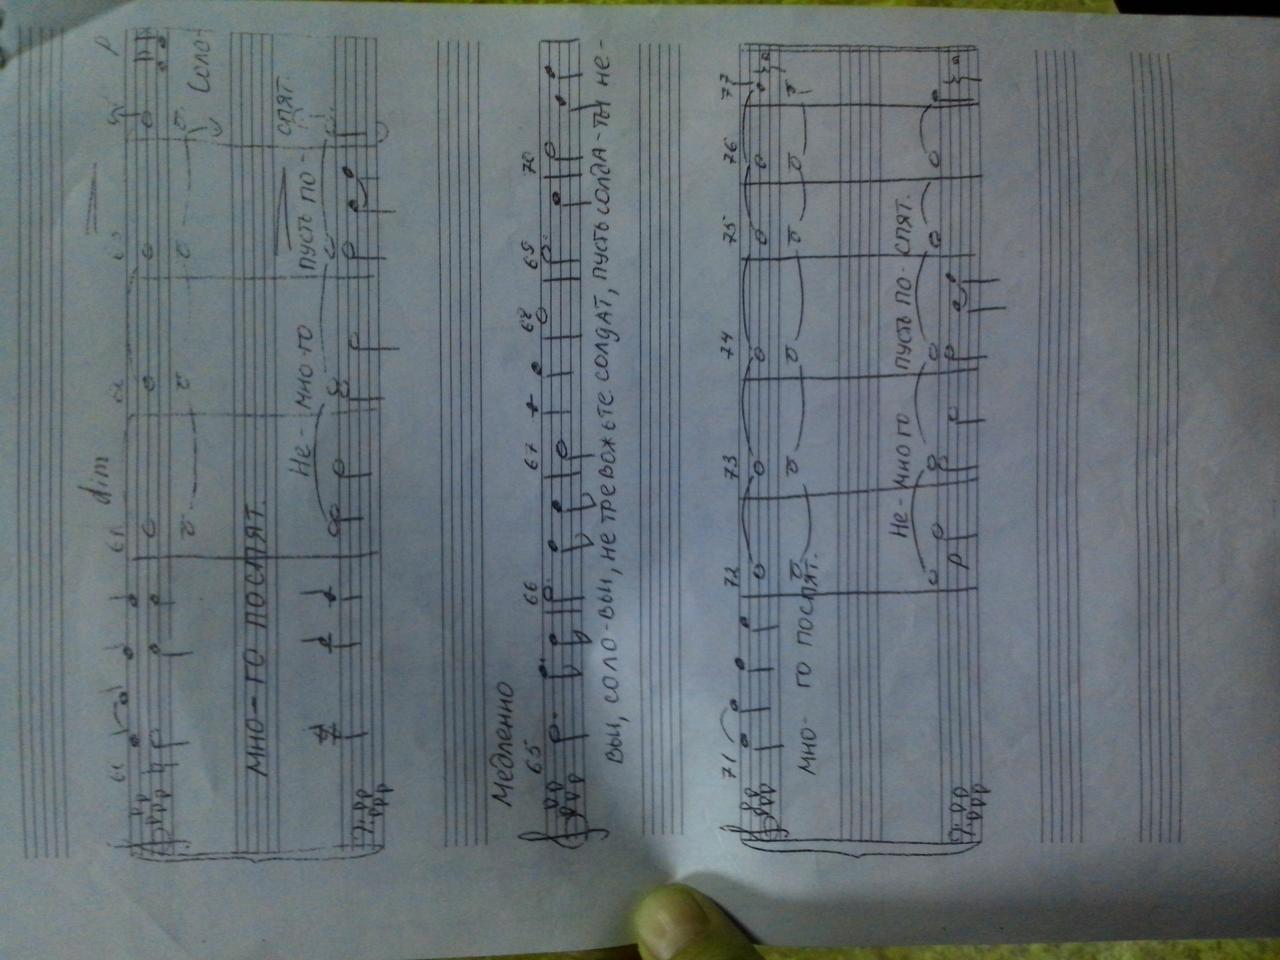 dim
p
мно-го поспят.
Соло-
Не-мно-го пусть по-спят.
Медленно
65 66 67 68 69 70
вьи, соло-вьи, не тревожьте солдат, пусть солда-ты не-
71 72 73 74 75 76 77
мно- го поспят.
Не-много пусть по-спят.
p